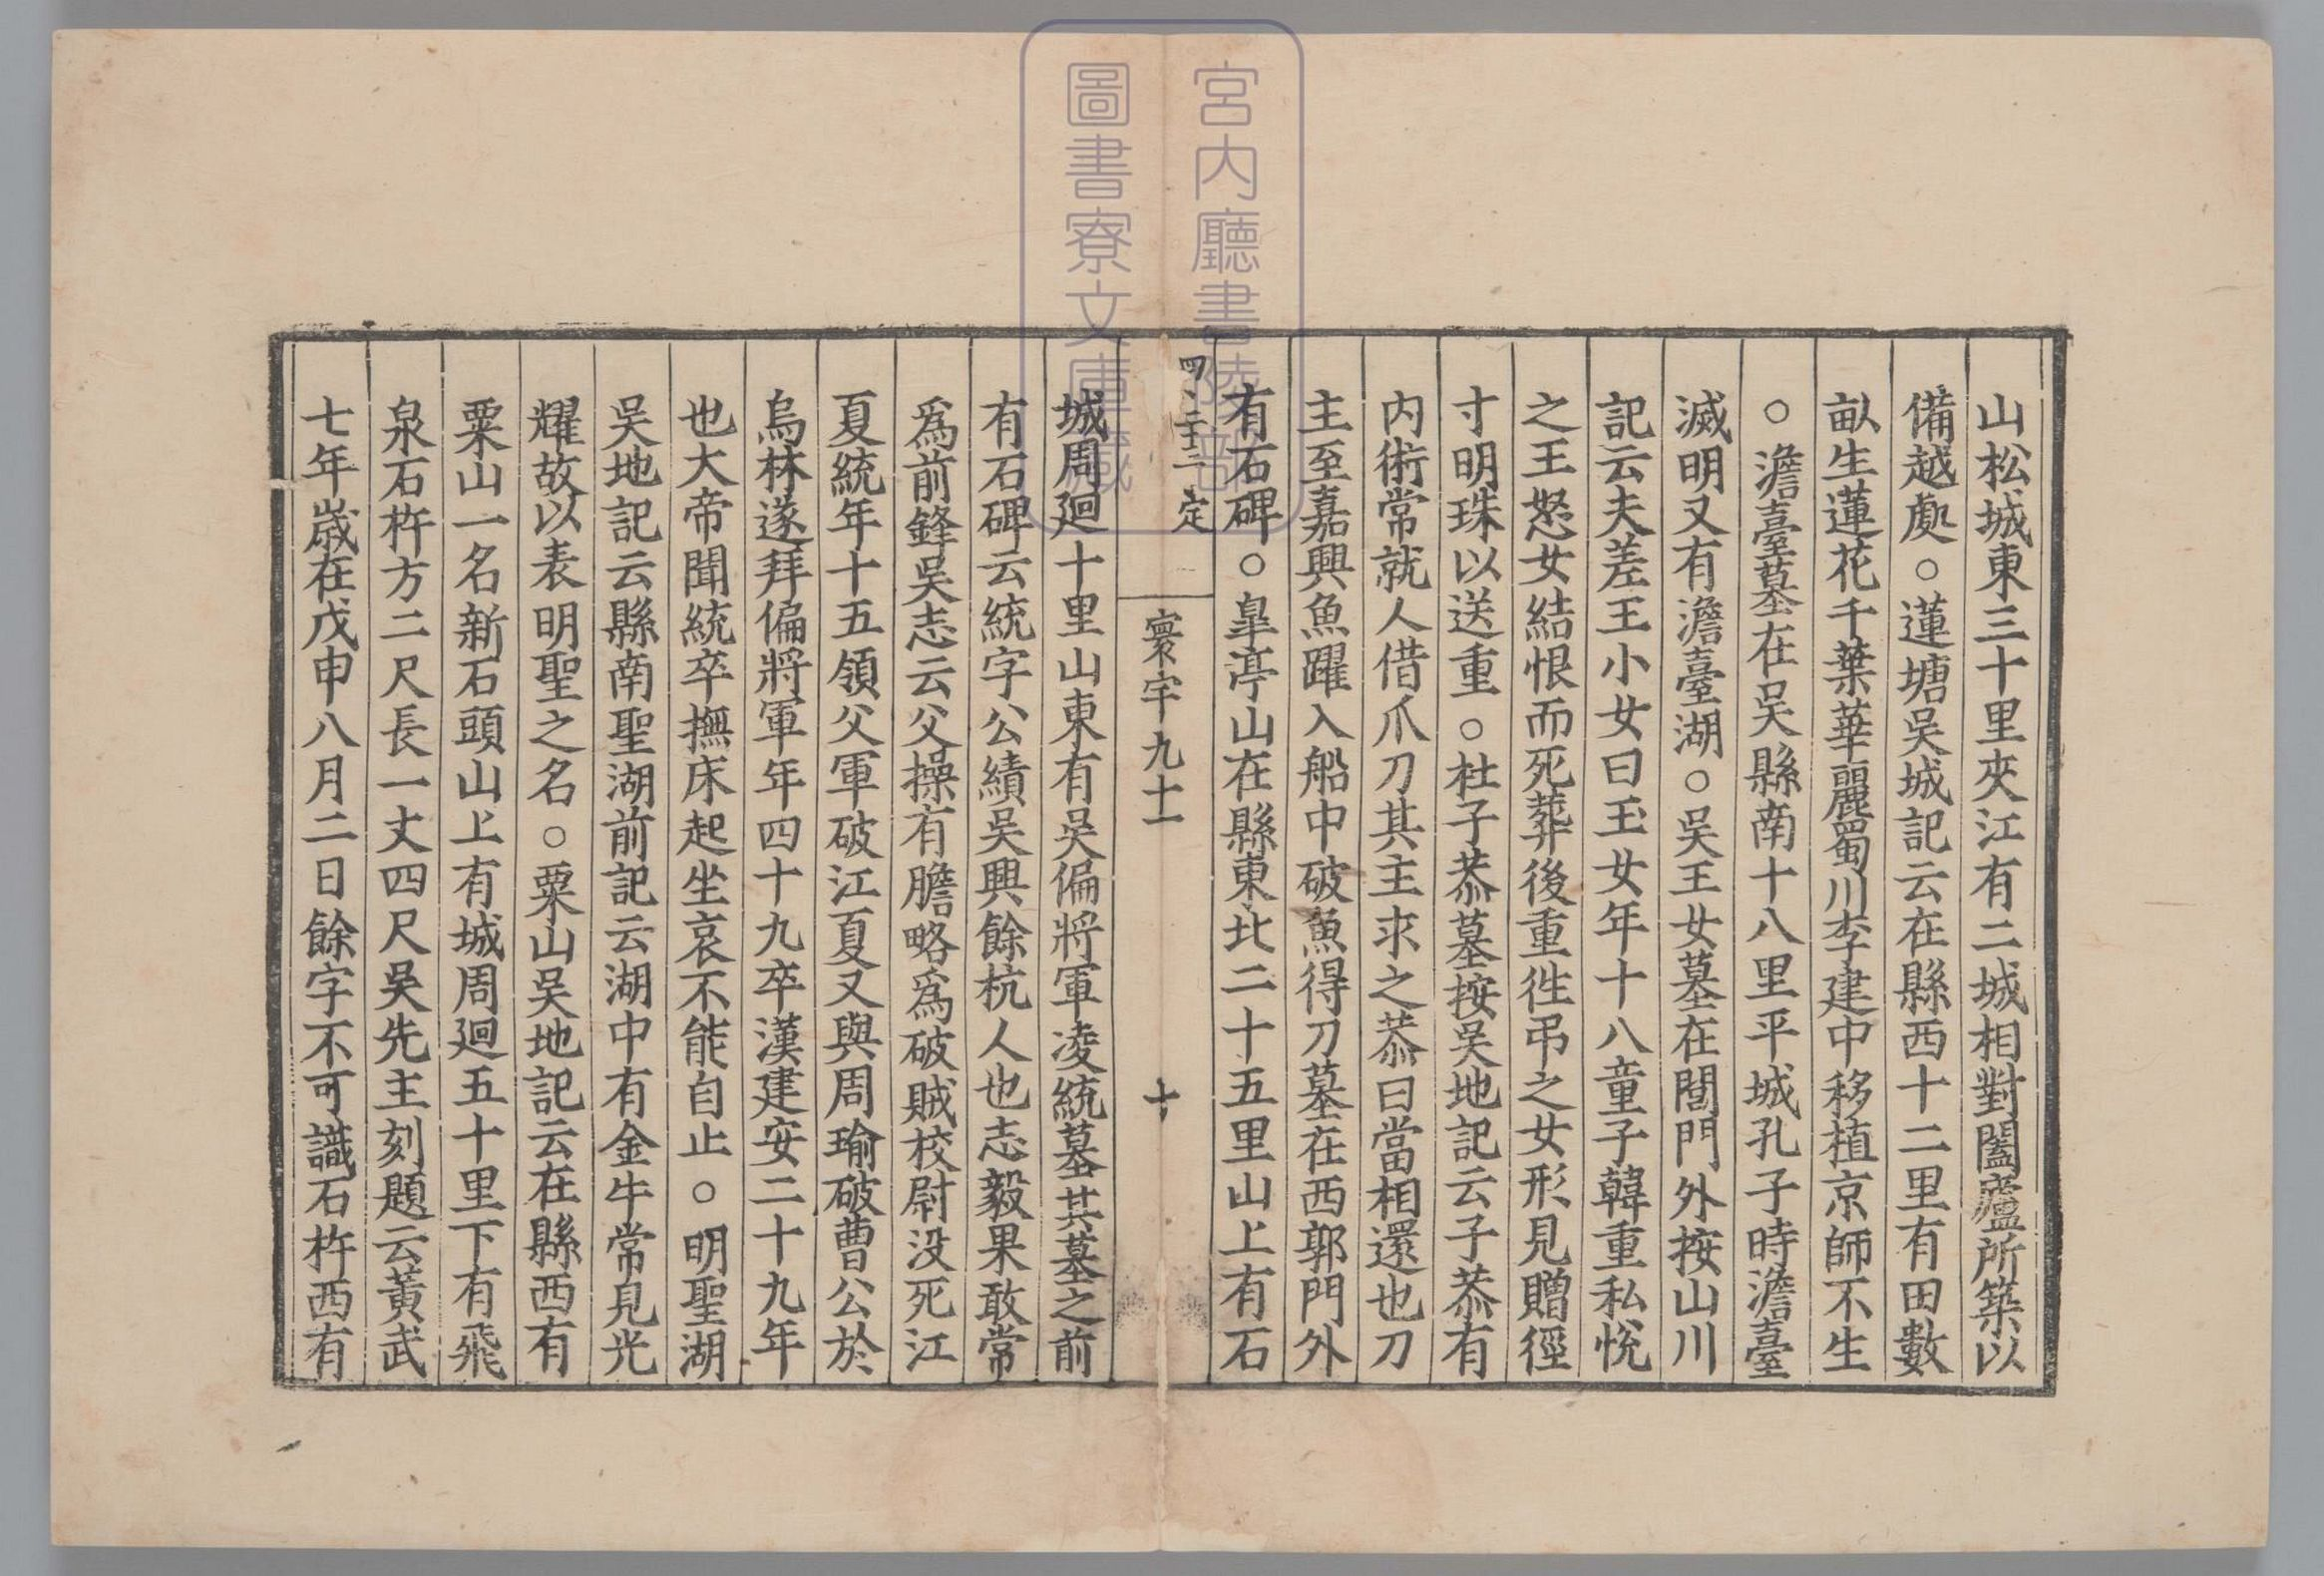 山松城東三十里夾江有二城相對闔廬所築以
備越處○蓮塘吳城記云在縣西十二里有田數
畝生蓮花千葉華麗蜀川李建中移植京師不生
○澹臺墓在吳縣南十八里平城孔子時澹臺
滅明又有澹臺湖○吳王女墓在閶門外按山川
記云夫差王小女曰玉女年十八童子韓重私悅
之王怒女結恨而死葬後重徃弔之女形見贈徑
寸明珠以送重○杜子恭墓按吳地記云子恭有
内術常就人借爪刀其主求之恭曰當相還也刀
主至嘉興魚躍入船中破魚得刀墓在西郭門外
有石碑○臯亭山在縣東北二十五里山上有石
四、三十三 定
寰宇九十一
十
城周廻十里山東有吳偏將軍凌統墓其墓之前
有石碑云統字公績吳興餘杭人也志毅果敢常
爲前鋒吳志云父操有膽略爲破賊校尉没死江
夏統年十五領父軍破江夏又與周瑜破曹公於
烏林遂拜偏將軍年四十九卒漢建安二十九年
也大帝聞統卒撫床起坐哀不能自止○明聖湖
吳地記云縣南聖湖前記云湖中有金牛常見光
耀故以表明聖之名○粟山吳地記云在縣西有
粟山一名新石頭山上有城周廻五十里下有飛
泉石杵方二尺長一丈四尺吳先主刻題云黃武
七年歲在戊申八月二日餘字不可識石杵西有
宮内廳書陵部
圖書寮文庫藏